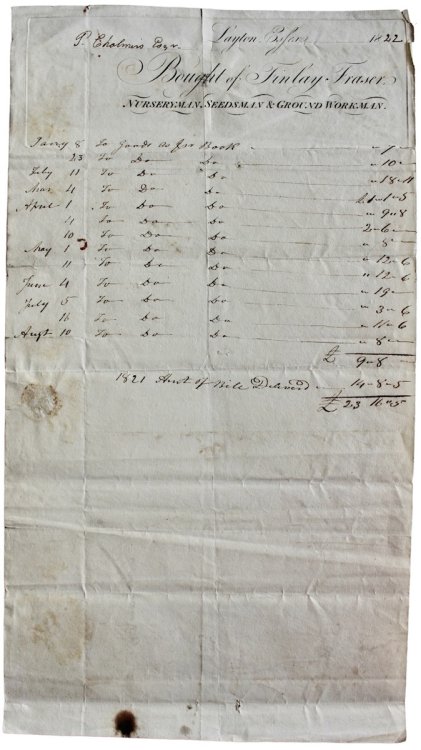 Layton, Essex 1822
P. Chalmers Esqr.
Bought of Finlay Fraser.
NURSERYMAN, SEEDSMAN & GROUND WORKMAN.
8 To Goods as pr Book " 7 "
23 To Do Do " 10 "
11 To Do Do " 18 "
Mar 4 To Do Do 1 " 5
April 1 To Do Do " 9 " 8
4 To Do Do 2 " 6 "
10 To Do Do " 8 "
May 1 To Do Do " 12 " 6
11 To Do Do " 12 " 6
June 4 To Do Do " 19 "
July 5 To Do Do " 3 " 6
16 To Do Do " 11 " 6
Augt 10 To Do Do " 8 "
£ 9 " 8
1821 Amt of Bill Deliverd 14 " 8 " 5
£ 23 16 " 5